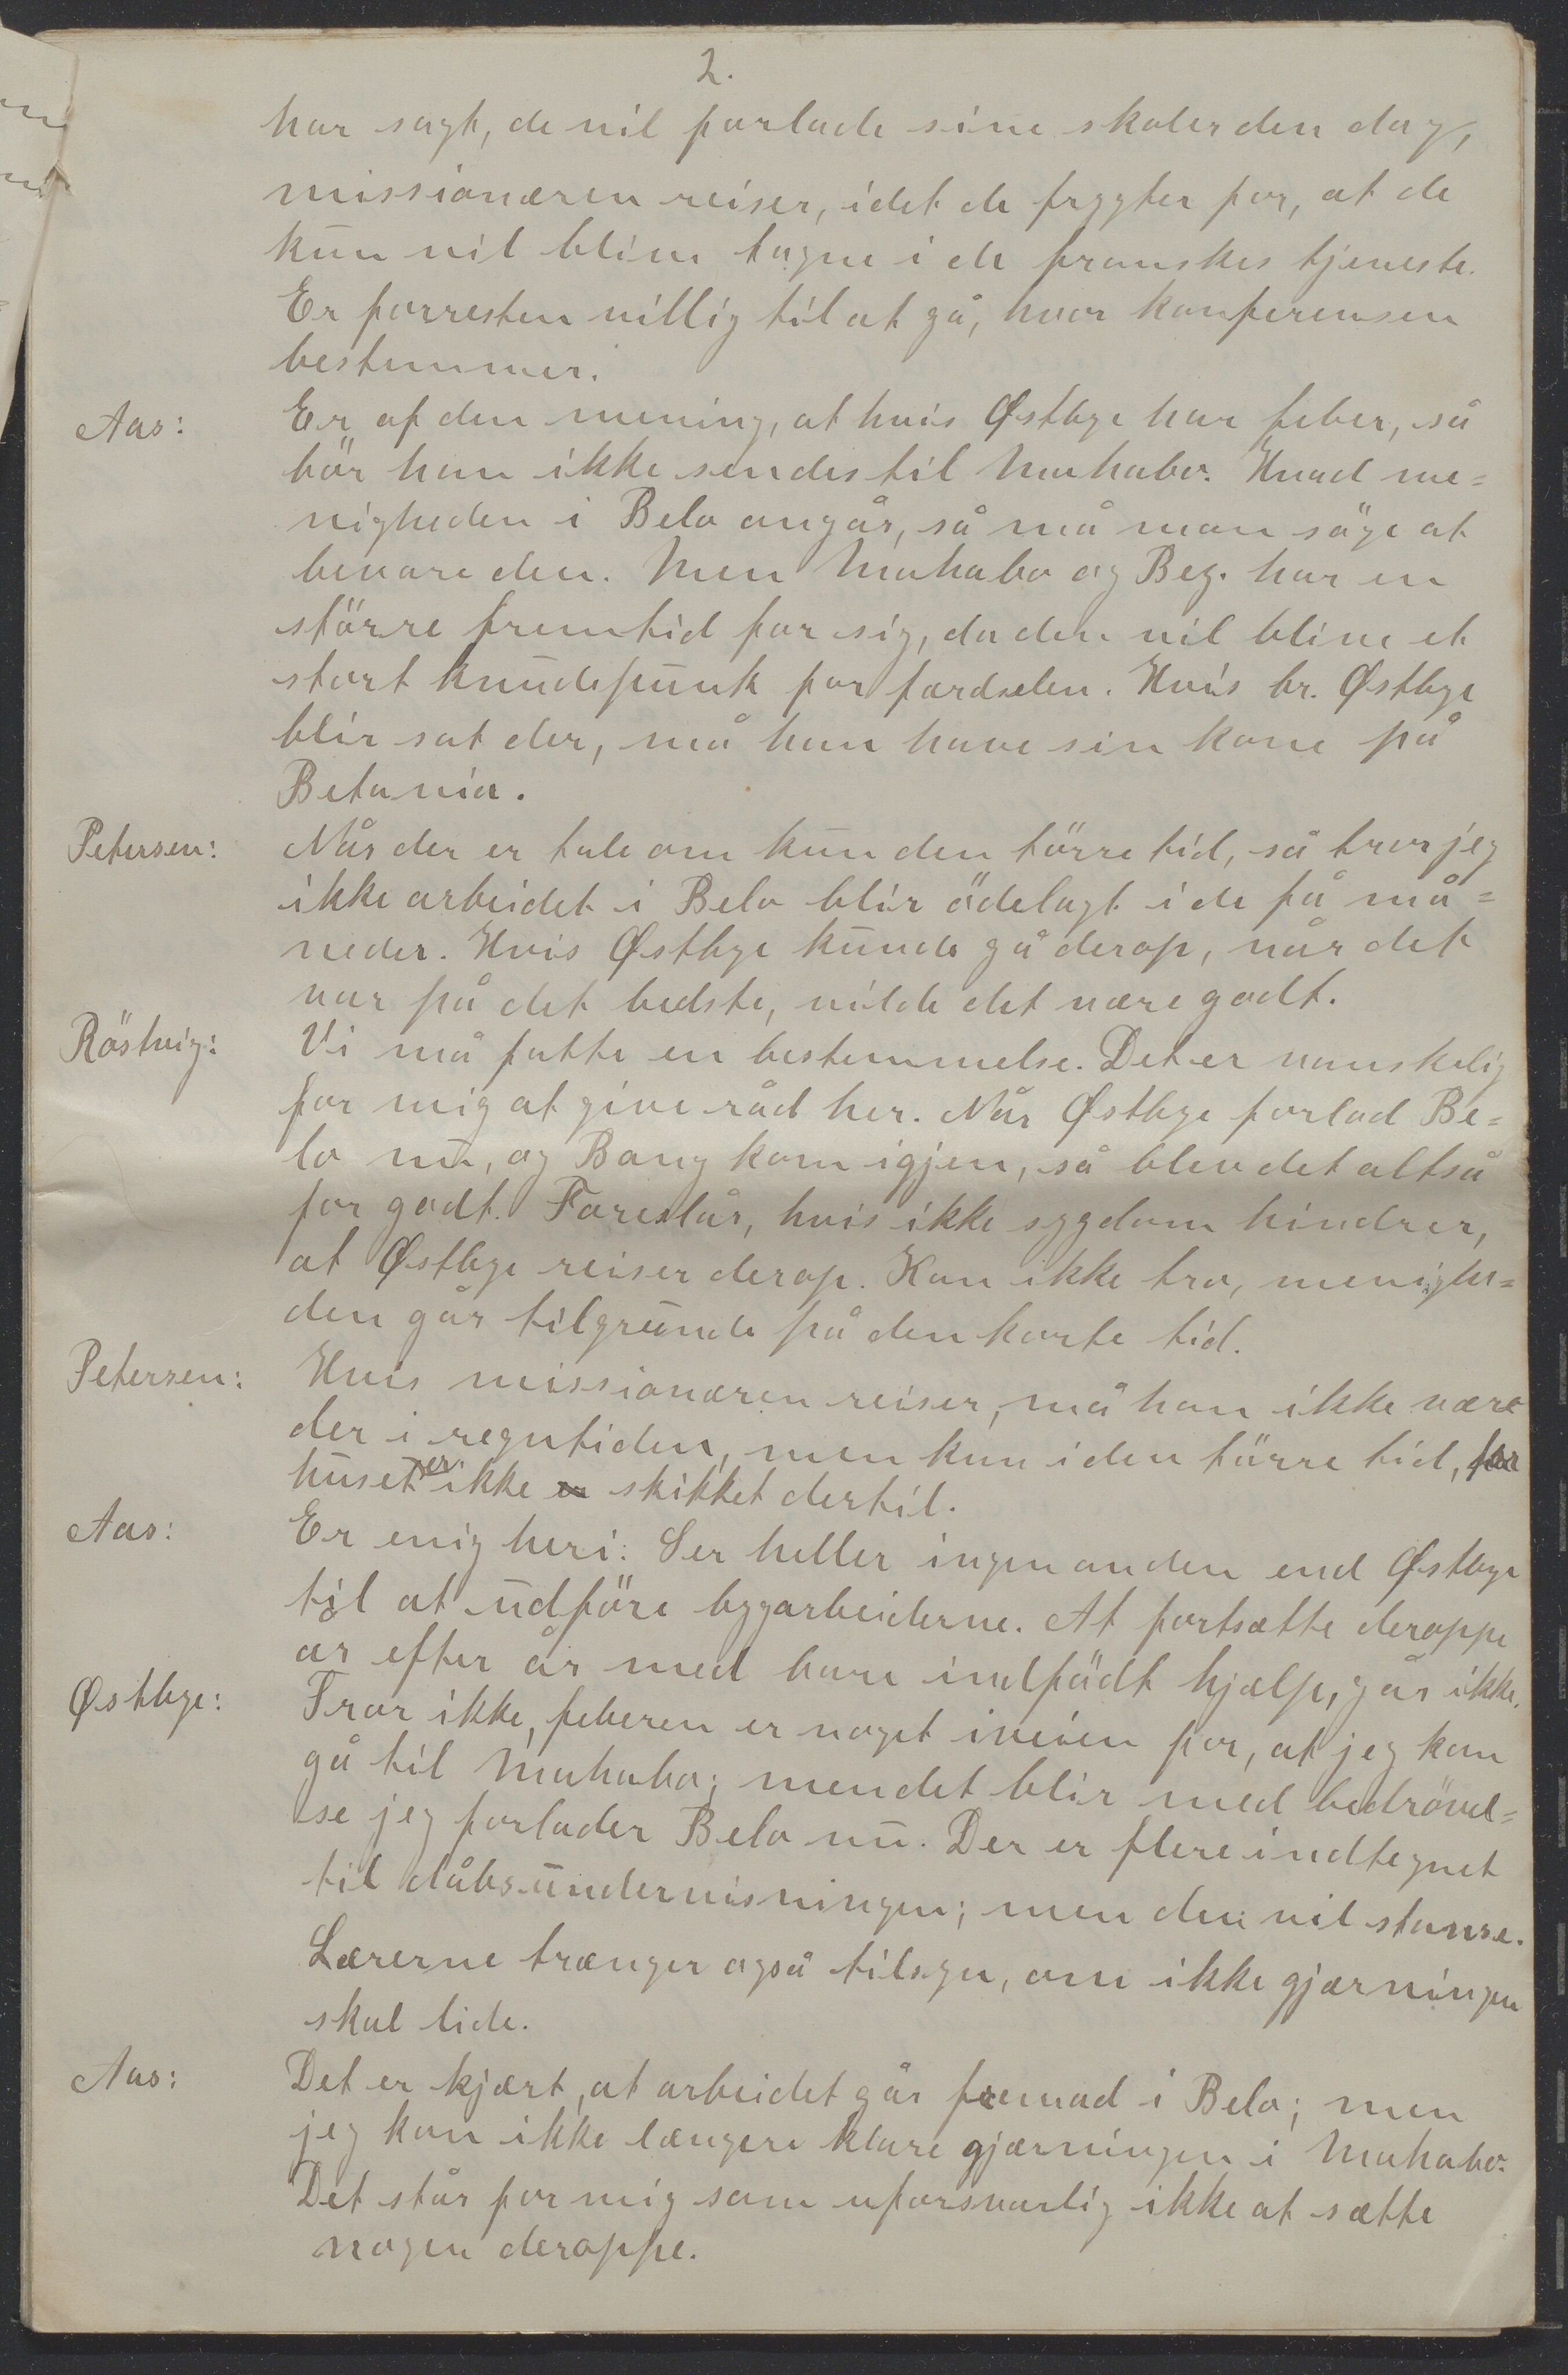 2.
har sagt, de vil forlade sine skoler den dag,
missionæren reiser, idet de frygter for, at de
kun vil blive tagne i de franskes tjeneste.
Er forresten villig til at gå, hvor konferensen
bestemmer.
Aas: Er af den mening, at hvis Østbye har feber, så
bör han ikke sendes til Mahabo. Hvad me=
nigheden i Belo angår, så må man söge at
bevare den. Men Mahabo og Bez. har en
större fremtid for sig, da den vil blive et
stort knudepunk for færdselen. Hvis br. Østbye
blir sat der, må han have sin kone på
Betania.
Petersen: Når der er tale om kun den törre tid, så tror jeg
ikke arbeidet i Belo blir ödelagt i de få må=
neder. Hvis Østbye kunde gå derop, når det
var på det bedste, vilde det være godt.
Röstvig: Vi må fatte en bestemmelse. Det er vanskelig
for mig at give råd her. Når Østbye forlod Be=
lo nu, og Bang kom igjen, så blev det altså
for godt. Foreslår, hvis ikke sygdom hindrer,
at Østbye reiser derop. Kan ikke tro, menighe=
den går tilgrunde på den korte tid.
Petersen: Hvis missionæren reiser, må han ikke være
der i regntiden, men kun i den törre tid, for
huset er ikke er skikket dertil.
Aas: Er enig heri. Ser heller ingen anden end Østbye
til at udföre bygarbeiderne. At fortsætte deroppe
år efter år med bare indfödt hjælp, går ikke.
Østbye: Tror ikke, feberen er noget iveien for, at jeg kan
gå til Mahabo; men det blir med bedrövel=
se jeg forlader Belo nu. Der er flere indtegnet
til dåbsundervisningen; men den vil stanse.
Lærerne trænger også tilsyn, om ikke gjærningen
skal lide.
Aas: Det er kjært, at arbeidet går fremad i Belo; men
jeg kan ikke længere klare gjærningen i Mahabo.
Det står for mig som uforsvarlig ikke at sætte
nogen deroppe.